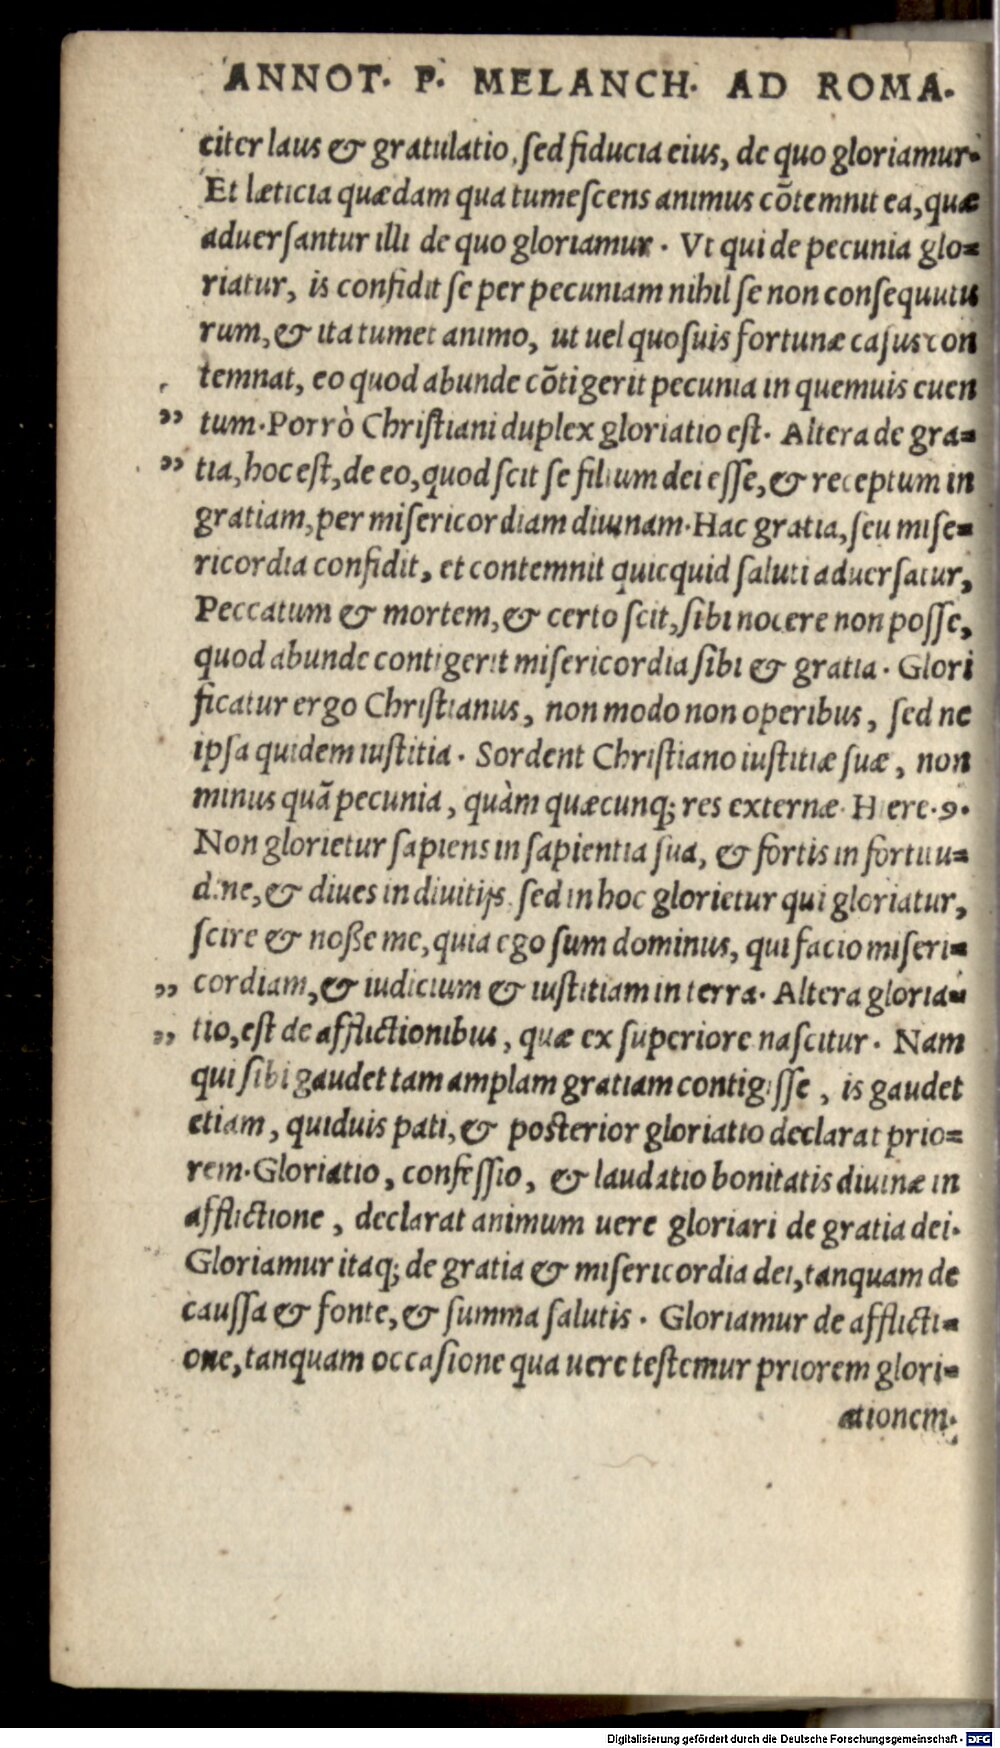 ANNOT. P. MELANCH. AD ROMA.
citer laus & gratulatio, sed fiducia eius, de quo gloriamur.
Et læticia quædam qua tumescens animus cõtemnit ea, quæ
aduersantur illi de quo gloriamur. Vt qui de pecunia glo=
riatur, is confidit se per pecuniam nihil se non consequutu
rum, & ita tumet animo, ut uel quosuis fortunæ casus con
temnat, eo quod abunde cõtigerit pecunia in quemuis euen
" tum. Porrò Christiani duplex gloriatio est. Altera de gra=
" tia, hoc est, de eo, quod scit se filium dei esse, & receptum in
gratiam, per misericordiam diuinam. Hac gratia, seu mise=
ricordia confidit, et contemnit quicquid saluti aduersatur,
Peccatum & mortem, & certo scit, sibi nocere non posse,
quod abunde contigerit misericordia sibi & gratia. Glori
ficatur ergo Christianus, non modo non operibus, sed ne
ipsa quidem iustitia. Sordent Christiano iustitiæ suæ, non
minus quã pecunia, quàm quæcunq; res externæ. Hiere. 9.
Non glorietur sapiens in sapientia sua, & fortis in fortitu=
dine, & diues in diuitijs. sed in hoc glorietur qui gloriatur,
scire & noße me, quia ego sum dominus, qui facio miseri=
" cordiam, & iudicium & iustitiam in terra. Altera gloria=
" tio, est de afflictionibus, quæ ex superiore nascitur. Nam
qui sibi gaudet tam amplam gratiam contigisse, is gaudet
etiam, quiduis pati, & posterior gloriatio declarat prio=
rem. Gloriatio, confessio, & laudatio bonitatis diuinæ in
afflictione, declarat animum uere gloriari de gratia dei.
Gloriamur itaq; de gratia & misericordia dei, tanquam de
caussa & fonte, & summa salutis. Gloriamur de afflicti=
one, tanquam occasione qua uere testemur priorem glori=
ationem.
Digitalisierung gefördert durch die Deutsche Forschungsgemeinschaft - DFG